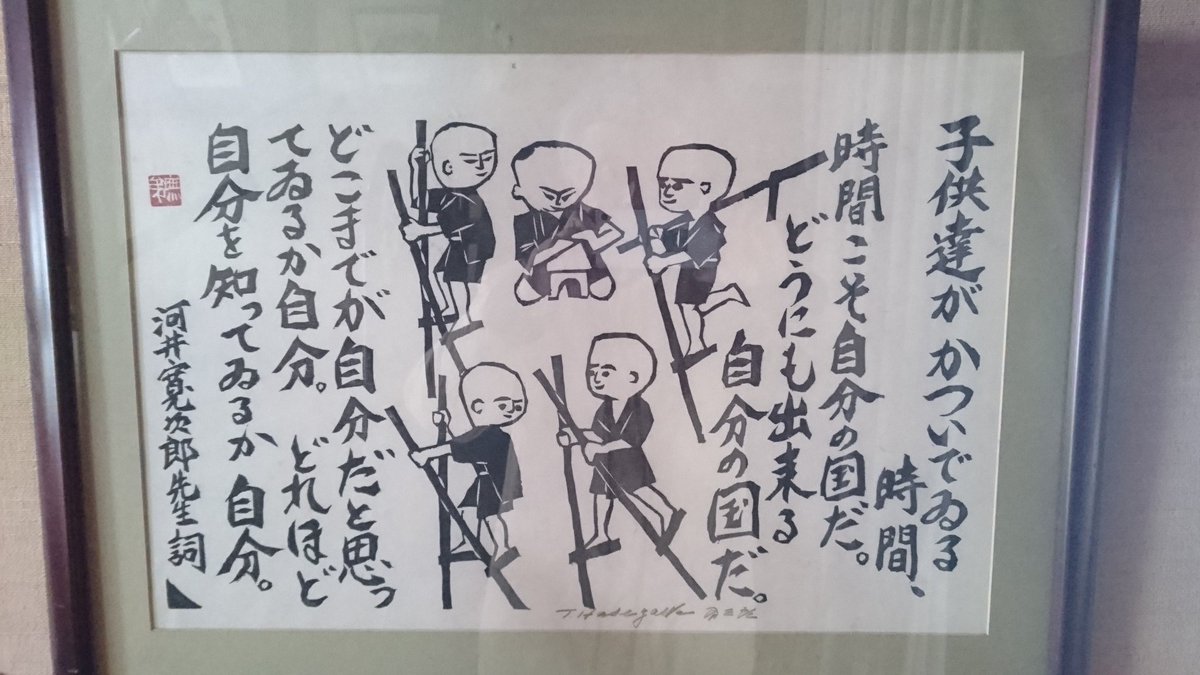 子供達がかついでゐる
時間、
時間こそ自分の国だ。
どうにも出来る
自分の国だ。
どこまでが自分だと思っ
てゐるか自分。 どれほど
自分を知ってゐるか 自分。
河井寛次郎先生詞
T. Hasegawa